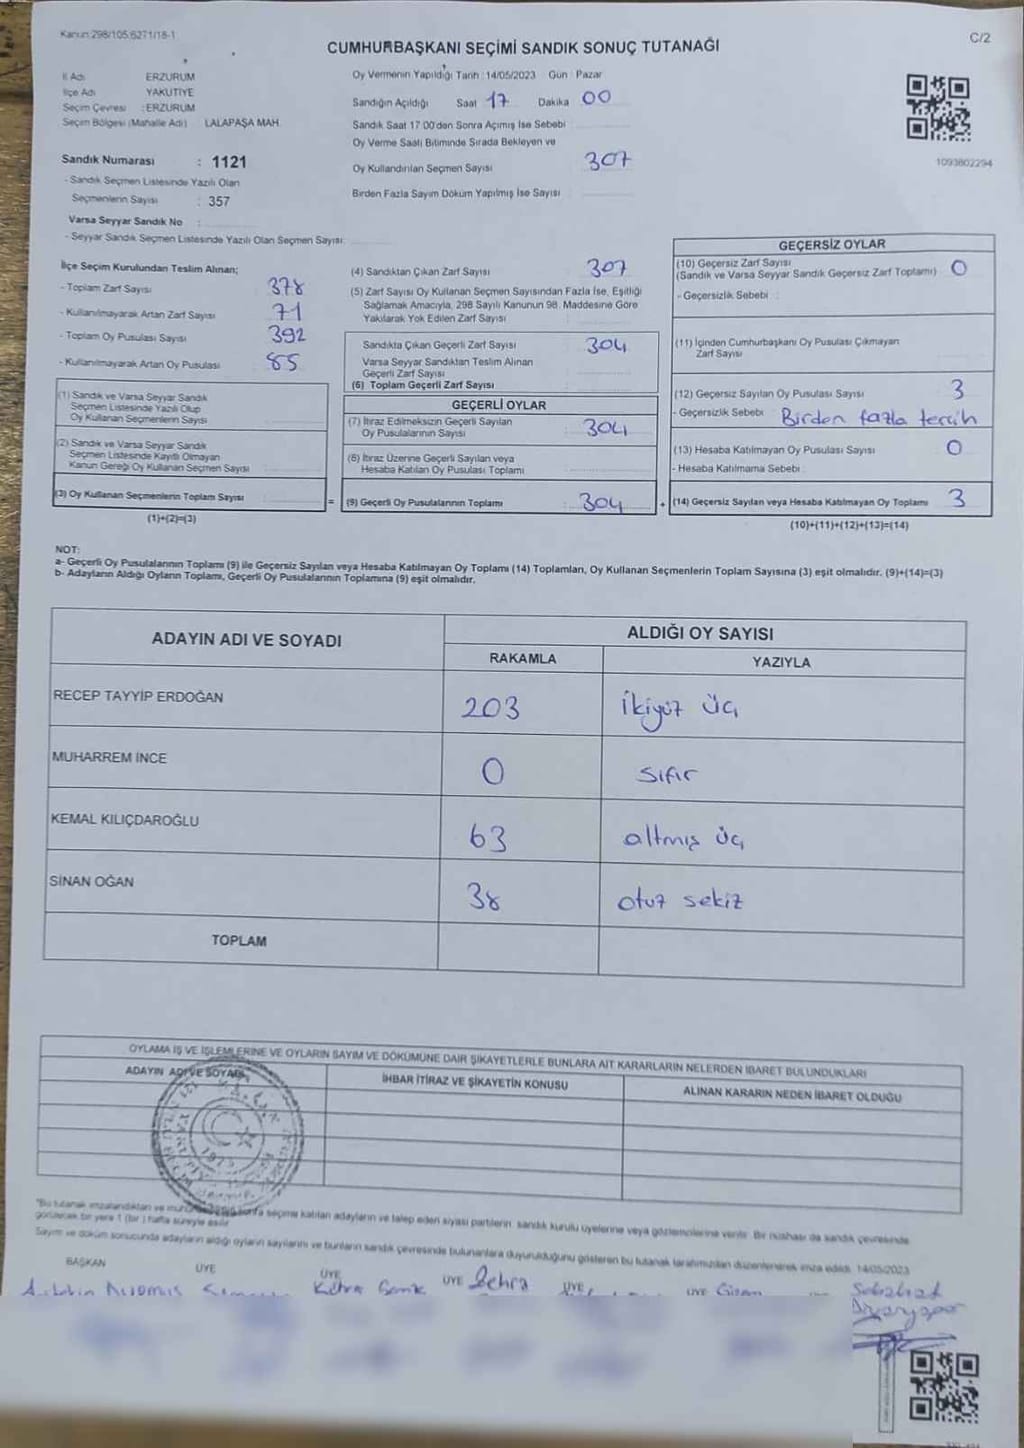 Kanun:298/105,6271/18-1
C/2
CUMHURBAŞKANI SEÇİMİ SANDIK SONUÇ TUTANAĞI
İl Adı ERZURUM
İlçe Adı YAKUTİYE
Seçim Çevresi : ERZURUM
Seçim Bölgesi (Mahalle Adı) LALAPAŞA MAH.
Oy Vermenin Yapıldığı Tarih : 14/05/2023 Gün : Pazar
Sandığın Açıldığı Saat 17 Dakika 00
Sandık Saat 17:00'den Sonra Açılmış İse Sebebi
Oy Verme Saati Bitiminde Sırada Bekleyen ve
Oy Kullandırılan Seçmen Sayısı 307
Birden Fazla Sayım Döküm Yapılmış İse Sayısı
1093802294
Sandık Numarası : 1121
- Sandık Seçmen Listesinde Yazılı Olan
Seçmenlerin Sayısı : 357
Varsa Seyyar Sandık No :
- Seyyar Sandık Seçmen Listesinde Yazılı Olan Seçmen Sayısı:
İlçe Seçim Kurulundan Teslim Alınan;
- Toplam Zarf Sayısı 378
- Kullanılmayarak Artan Zarf Sayısı 71
- Toplam Oy Pusulası Sayısı 392
- Kullanılmayarak Artan Oy Pusulası 85
(1) Sandık ve Varsa Seyyar Sandık
Seçmen Listesinde Yazılı Olup
Oy Kullanan Seçmenlerin Sayısı
(2) Sandık ve Varsa Seyyar Sandık
Seçmen Listesinde Kayıtlı Olmayan
Kanun Gereği Oy Kullanan Seçmen Sayısı
(3) Oy Kullanan Seçmenlerin Toplam Sayısı
(1)+(2)=(3)
(4) Sandıktan Çıkan Zarf Sayısı 307
(5) Zarf Sayısı Oy Kullanan Seçmen Sayısından Fazla İse, Eşitliği
Sağlamak Amacıyla, 298 Sayılı Kanunun 98. Maddesine Göre
Yakılarak Yok Edilen Zarf Sayısı
Sandıkta Çıkan Geçerli Zarf Sayısı 304
Varsa Seyyar Sandıktan Teslim Alınan
Geçerli Zarf Sayısı
(6) Toplam Geçerli Zarf Sayısı
GEÇERLİ OYLAR
(7) İtiraz Edilmeksizin Geçerli Sayılan
Oy Pusulalarının Sayısı 304
(8) İtiraz Üzerine Geçerli Sayılan veya
Hesaba Katılan Oy Pusulası Toplamı
= (9) Geçerli Oy Pusulalarının Toplamı 304
GEÇERSİZ OYLAR
(10) Geçersiz Zarf Sayısı
(Sandık ve Varsa Seyyar Sandık Geçersiz Zarf Toplamı) 0
- Geçersizlik Sebebi :
(11) İçinden Cumhurbaşkanı Oy Pusulası Çıkmayan
Zarf Sayısı
(12) Geçersiz Sayılan Oy Pusulası Sayısı 3
- Geçersizlik Sebebi Birden fazla tercih
(13) Hesaba Katılmayan Oy Pusulası Sayısı 0
- Hesaba Katılmama Sebebi
+ (14) Geçersiz Sayılan veya Hesaba Katılmayan Oy Toplamı 3
(10)+(11)+(12)+(13)=(14)
NOT:
a- Geçerli Oy Pusulalarının Toplamı (9) ile Geçersiz Sayılan veya Hesaba Katılmayan Oy Toplamı (14) Toplamları, Oy Kullanan Seçmenlerin Toplam Sayısına (3) eşit olmalıdır. (9)+(14)=(3)
b- Adayların Aldığı Oyların Toplamı, Geçerli Oy Pusulalarının Toplamına (9) eşit olmalıdır.
ADAYIN ADI VE SOYADI
ALDIĞI OY SAYISI
RAKAMLA YAZIYLA
RECEP TAYYİP ERDOĞAN 203 ikiyüz üç
MUHARREM İNCE 0 sıfır
KEMAL KILIÇDAROĞLU 63 altmış üç
SİNAN OĞAN 38 otuz sekiz
TOPLAM
OYLAMA İŞ VE İŞLEMLERİNE VE OYLARIN SAYIM VE DÖKÜMÜNE DAİR ŞİKAYETLERLE BUNLARA AİT KARARLARIN NELERDEN İBARET BULUNDUKLARI
ADAYIN ADI VE SOYADI İHBAR İTİRAZ VE ŞİKAYETİN KONUSU ALINAN KARARIN NEDEN İBARET OLDUĞU
"Bu tutanak imzalandıktan ve sonra seçime katılan adayların ve talep eden siyasi partilerin sandık kurulu üyelerine veya gözlemcilerine verilir. Bir nüshası da sandık çevresinde
görülecek bir yere 1 (bir) hafta süreyle asılır
Sayım ve döküm sonucunda adayların aldığı oyların sayılarını ve bunların sandık çevresinde bulunanlara duyurulduğunu gösteren bu tutanak tarafımızdan düzenlenerek imza edildi. 14/05/2023
BAŞKAN ÜYE ÜYE ÜYE ÜYE ÜYE
Kübra Zehra